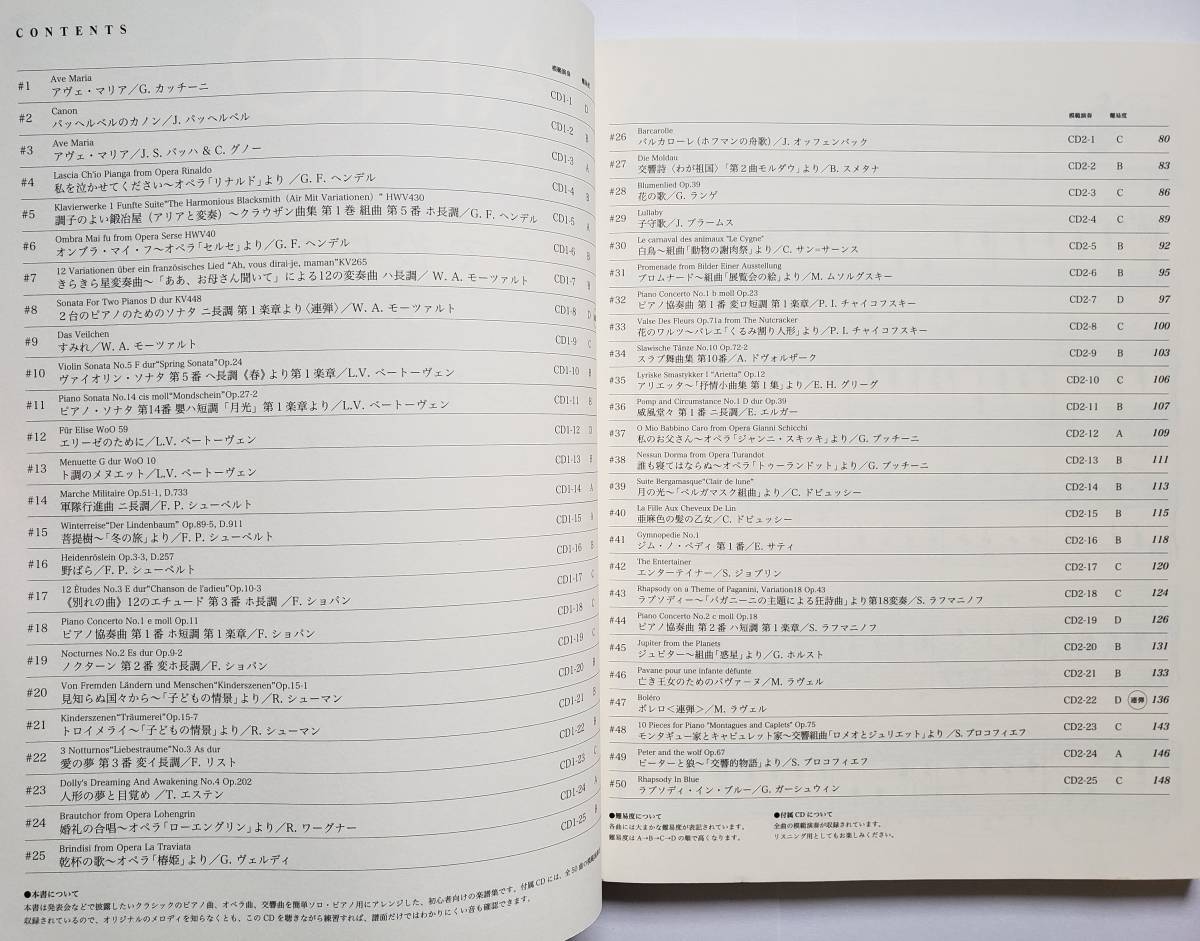 CONTENTS
模範演奏 難易度
#1 Ave Maria
アヴェ・マリア／G. カッチーニ CD1-1 D
#2 Canon
パッヘルベルのカノン／J. パッヘルベル CD1-2 B
#3 Ave Maria
アヴェ・マリア／J. S. バッハ & C. グノー CD1-3 A
#4 Lascia Ch'io Pianga from Opera Rinaldo
私を泣かせてください～オペラ「リナルド」より ／G. F. ヘンデル CD1-4 B
#5 Klavierwerke 1 Funfte Suite"The Harmonious Blacksmith (Air Mit Variationen) " HWV430
調子のよい鍛冶屋（アリアと変奏）～クラウザン曲集 第１巻 組曲 第５番 ホ長調／G. F. ヘンデル CD1-5 A
#6 Ombra Mai fu from Opera Serse HWV40
オンブラ・マイ・フ～オペラ「セルセ」より／G. F. ヘンデル CD1-6 B
#7 12 Variationen über ein französisches Lied "Ah, vous dirai-je, maman"KV265
きらきら星変奏曲～「ああ、お母さん聞いて」による12の変奏曲 ハ長調／ W. A. モーツァルト CD1-7
#8 Sonata For Two Pianos D dur KV448
２台のピアノのためのソナタ ニ長調 第１楽章より〈連弾〉／W. A. モーツァルト CD1-8 D
#9 Das Veilchen
すみれ／W. A. モーツァルト CD1-9 C
#10 Violin Sonata No.5 F dur"Spring Sonata"Op.24
ヴァイオリン・ソナタ 第５番 ヘ長調《春》より第１楽章／L.V. ベートーヴェン CD1-10 B
#11 Piano Sonata No.14 cis moll"Mondschein"Op.27-2
ピアノ・ソナタ 第14番 嬰ハ短調「月光」第１楽章より／L.V. ベートーヴェン CD1-11 B
#12 Für Elise WoO 59
エリーゼのために／L.V. ベートーヴェン CD1-12 D
#13 Menuette G dur WoO 10
ト調のメヌエット／L.V. ベートーヴェン CD1-13 B
#14 Marche Militaire Op.51-1, D.733
軍隊行進曲 ニ長調／F. P. シューベルト CD1-14 A
#15 Winterreise"Der Lindenbaum" Op.89-5, D.911
菩提樹～「冬の旅」より／F. P. シューベルト CD1-15
#16 Heidenröslein Op.3-3, D.257
野ばら／F. P. シューベルト CD1-16 B
#17 12 Études No.3 E dur"Chanson de l'adieu"Op.10-3
《別れの曲》12のエチュード 第３番 ホ長調 ／F. ショパン CD1-17 C
#18 Piano Concerto No.1 e moll Op.11
ピアノ協奏曲 第１番 ホ短調 第１楽章／F. ショパン CD1-18 C
#19 Nocturnes No.2 Es dur Op.9-2
ノクターン 第２番 変ホ長調／F. ショパン CD1-19 C
#20 Von Fremden Ländern und Menschen"Kinderszenen"Op.15-1
見知らぬ国々から～「子どもの情景」より／R. シューマン CD1-20 B
#21 Kinderszenen"Träumerei"Op.15-7
トロイメライ～「子どもの情景」より／R. シューマン CD1-21 B
#22 3 Notturnos"Liebestraume"No.3 As dur
愛の夢 第３番 変イ長調／F. リスト CD1-22 B
#23 Dolly's Dreaming And Awakening No.4 Op.202
人形の夢と目覚め ／T. エステン CD1-23 C
#24 Brautchor from Opera Lohengrin
婚礼の合唱～オペラ「ローエングリン」より／R. ワーグナー CD1-24 A
#25 Brindisi from Opera La Traviata
乾杯の歌～オペラ「椿姫」より／G. ヴェルディ CD1-25 B
●本書について
本書は発表会などで披露したいクラシックのピアノ曲、オペラ曲、交響曲を簡単ソロ・ピアノ用にアレンジした、初心者向けの楽譜集です。付属CDには、全50曲の模範演奏
収録されているので、オリジナルのメロディを知らなくとも、このCDを聴きながら練習すれば、譜面だけではわかりにくい音も確認できます。
模範演奏 難易度
#26 Barcarolle
バルカローレ（ホフマンの舟歌）／J. オッフェンバック CD2-1 C 80
#27 Die Moldau
交響詩〈わが祖国〉「第２曲モルダウ」より／B. スメタナ CD2-2 B 83
#28 Blumenlied Op.39
花の歌／G. ランゲ CD2-3 C 86
#29 Lullaby
子守歌／J. ブラームス CD2-4 C 89
#30 Le carnaval des animaux "Le Cygne"
白鳥～組曲「動物の謝肉祭」より／C. サン=サーンス CD2-5 B 92
#31 Promenade from Bilder Einer Ausstellung
プロムナード～組曲「展覧会の絵」より／M. ムソルグスキー CD2-6 B 95
#32 Piano Concerto No.1 b moll Op.23
ピアノ協奏曲 第１番 変ロ短調 第１楽章／P. I. チャイコフスキー CD2-7 D 97
#33 Valse Des Fleurs Op.71a from The Nutcracker
花のワルツ～バレエ「くるみ割り人形」より／P. I. チャイコフスキー CD2-8 C 100
#34 Slawische Tänze No.10 Op.72-2
スラブ舞曲集 第10番／A. ドヴォルザーク CD2-9 B 103
#35 Lyriske Smastykker I "Arietta" Op.12
アリエッタ～「抒情小曲集 第１集」より／E. H. グリーグ CD2-10 C 106
#36 Pomp and Circumstance No.1 D dur Op.39
威風堂々 第１番 ニ長調／E. エルガー CD2-11 B 107
#37 O Mio Babbino Caro from Opera Gianni Schicchi
私のお父さん～オペラ「ジャンニ・スキッキ」より／G. プッチーニ CD2-12 A 109
#38 Nessun Dorma from Opera Turandot
誰も寝てはならぬ～オペラ「トゥーランドット」より／G. プッチーニ CD2-13 B 111
#39 Suite Bergamasque"Clair de lune"
月の光～「ベルガマスク組曲」より／C. ドビュッシー CD2-14 B 113
#40 La Fille Aux Cheveux De Lin
亜麻色の髪の乙女／C. ドビュッシー CD2-15 B 115
#41 Gymnopedie No.1
ジム・ノ・ペディ 第１番／E. サティ CD2-16 B 118
#42 The Entertainer
エンターテイナー／S. ジョプリン CD2-17 C 120
#43 Rhapsody on a Theme of Paganini, Variation18 Op.43
ラプソディー～「パガニーニの主題による狂詩曲」より第18変奏／S. ラフマニノフ CD2-18 C 124
#44 Piano Concerto No.2 c moll Op.18
ピアノ協奏曲 第２番 ハ短調 第１楽章／S. ラフマニノフ CD2-19 D 126
#45 Jupiter from the Planets
ジュピター～組曲「惑星」より／G. ホルスト CD2-20 B 131
#46 Pavane pour une infante défunte
亡き王女のためのパヴァーヌ／M. ラヴェル CD2-21 B 133
#47 Boléro
ボレロ＜連弾＞／M. ラヴェル CD2-22 D 連弾 136
#48 10 Pieces for Piano "Montagues and Caplets" Op.75
モンタギュー家とキャピュレット家～交響組曲「ロメオとジュリエット」より ／S. プロコフィエフ CD2-23 C 143
#49 Peter and the wolf Op.67
ピーターと狼～「交響的物語」より／S. プロコフィエフ CD2-24 A 146
#50 Rhapsody In Blue
ラプソディ・イン・ブルー／G. ガーシュウィン CD2-25 C 148
●難易度について
各曲には大まかな難易度が表記されています。
難易度はA→B→C→Dの順で高くなります。
●付属CDについて
全曲の模範演奏が収録されています。
リスニング用としてもお楽しみください。